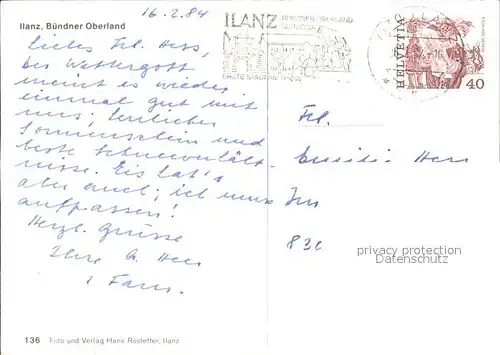 16.2.84
Ilanz, Bündner Oberland
Liebes Frl. Hess,
der Wettergott
meint es wieder
einmal gut mit
uns, herrlicher
Sonnenschein und
beste Schneeverhält-
nisse. Eis hat's
aber auch; ich muss
aufpassen!
Herzl. Grüsse
Ihre
Fam.
ILANZ
ERSTE STADT AM RHEIN
HELVETIA
40
Frl.
Hess
privacy protection
akpool.de
136 Foto und Verlag Hans Rostetter, Ilanz